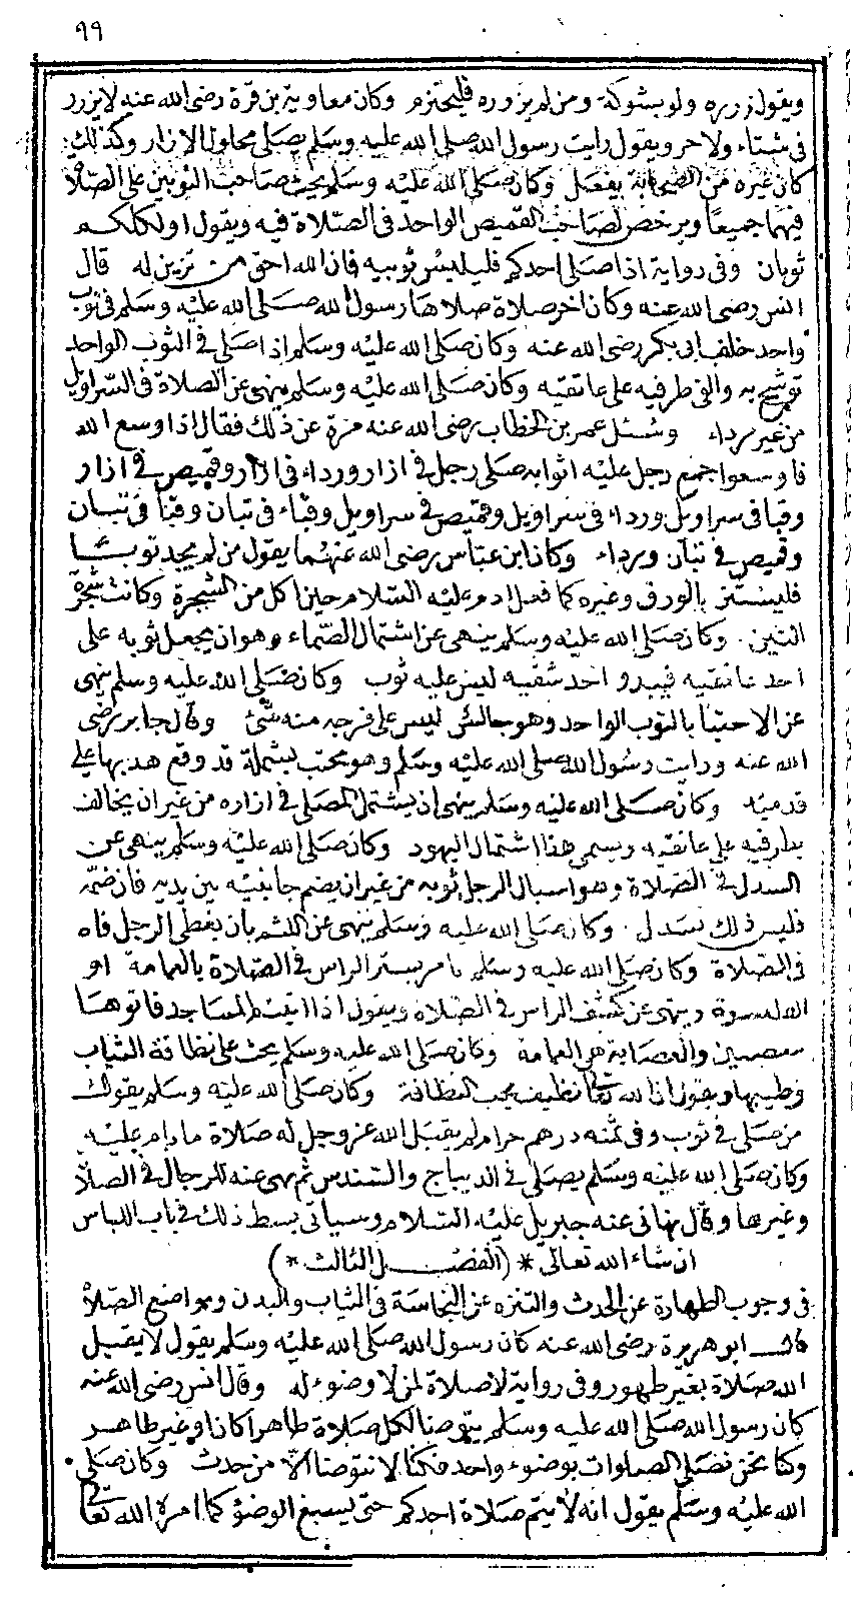 ٩٩
ويقول زرره ولو بشوكة ومن لم يزرره فليحتزم وكان معاوية بن قرة رضى الله عنه لا يزرر
فى شتاء ولا حر ويقول رايت رسول الله صلى الله عليه وسلم يصلى محلول الازار وكذلك
كان غيره من الصحابة يفعل وكان صلى الله عليه وسلم يحث صاحب الثوبين على الصلاة
فيهما جميعا ويرخص لصاحب القميص الواحد فى الصلاة فيه ويقول اولكلكم
ثوبان وفى رواية اذا صلى احدكم فليلبس ثوبيه فان الله احق من تزين له قال
انس رضى الله عنه وكان اخر صلاة صلاها رسول الله صلى الله عليه وسلم فى ثوب
واحد خلف ابى بكر رضى الله عنه وكان صلى الله عليه وسلم اذا صلى فى الثوب الواحد
توشح به والقى طرفيه على عاتقيه وكان صلى الله عليه وسلم ينهى عن الصلاة فى السراويل
من غير رداء وسئل عمر بن الخطاب رضى الله عنه مرة عن ذلك فقال اذا وسع الله
فاوسعوا جمع رجل عليه اثوابه صلى رجل فى ازار ورداء فى ازار وقميص فى ازار
وقبا فى سراويل ورداء فى سراويل وقميص فى سراويل وقباء فى تبان وقبا فى تبان
وقميص فى تبان ورداء وكان ابن عباس رضى الله عنهما يقول من لم يجد ثوبا
فليستتر بالورق وغيره كما فعل ادم عليه السلام حين اكل من الشجرة وكانت شجرة
التين وكان صلى الله عليه وسلم ينهى عن اشتمال الصماء وهو ان يجعل ثوبه على
احد عاتقيه فيبدو احد شقيه ليس عليه ثوب وكان صلى الله عليه وسلم ينهى
عن الاحتبا بالثوب الواحد وهو جالس ليس على فرجه منه شئ وقال جابر رضى
الله عنه ورايت رسول الله صلى الله عليه وسلم وهو محتب بشملة قد وقع هدبها على
قدميه وكان صلى الله عليه وسلم ينهى ان يشتمل المصلى فى ازاره من غير ان يخالف
بطرفيه على عاتقيه ويسمى هذا اشتمال اليهود وكان صلى الله عليه وسلم ينهى عن
السدل فى الصلاة وهو اسبال الرجل ثوبه من غير ان يضم جانبيه بين يديه فان ضمه
فليس ذلك بسدل وكان صلى الله عليه وسلم ينهى عن اللثم بان يغطى الرجل فاه
فى الصلاة وكان صلى الله عليه وسلم يامر بستر الراس فى الصلاة بالعمامة او
القلنسوة وينهى عن كشف الراس فى الصلاة ويقول اذا اتيتم المساجد فاتوها
معصبين والعصابة هى العمامة وكان صلى الله عليه وسلم يحث على نظافة الثياب
وطيبها ويقول ان الله تعالى نظيف يحب النظافة وكان صلى الله عليه وسلم يقول
من صلى فى ثوب وفى ثمنه درهم حرام لم يقبل الله عز وجل له صلاة ما دام عليه
وكان صلى الله عليه وسلم يصلى فى الديباج والسندس ثم نهى عنه للرجال فى الصلاة
وغيرها وقال نهانى عنه جبريل عليه السلام وسياتى بسط ذلك فى باب اللباس
ان شاء الله تعالى * (الفصل الثالث *)
فى وجوب الطهارة عن الحدث والتنزه عن النجاسة فى الثياب والبدن ومواضع الصلاة
قال ابو هريرة رضى الله عنه كان رسول الله صلى الله عليه وسلم يقول لا يقبل
الله صلاة بغير طهور وفى رواية لا صلاة لمن لا وضوء له وقال انس رضى الله عنه
كان رسول الله صلى الله عليه وسلم يتوضا لكل صلاة طاهرا كان او غير طاهر
وكنا نحن نصلى الصلوات بوضوء واحد فكنا لا نتوضا الا من حدث وكان صلى
الله عليه وسلم يقول انه لا يتم صلاة احدكم حتى يسبغ الوضوء كما امره الله تعالى